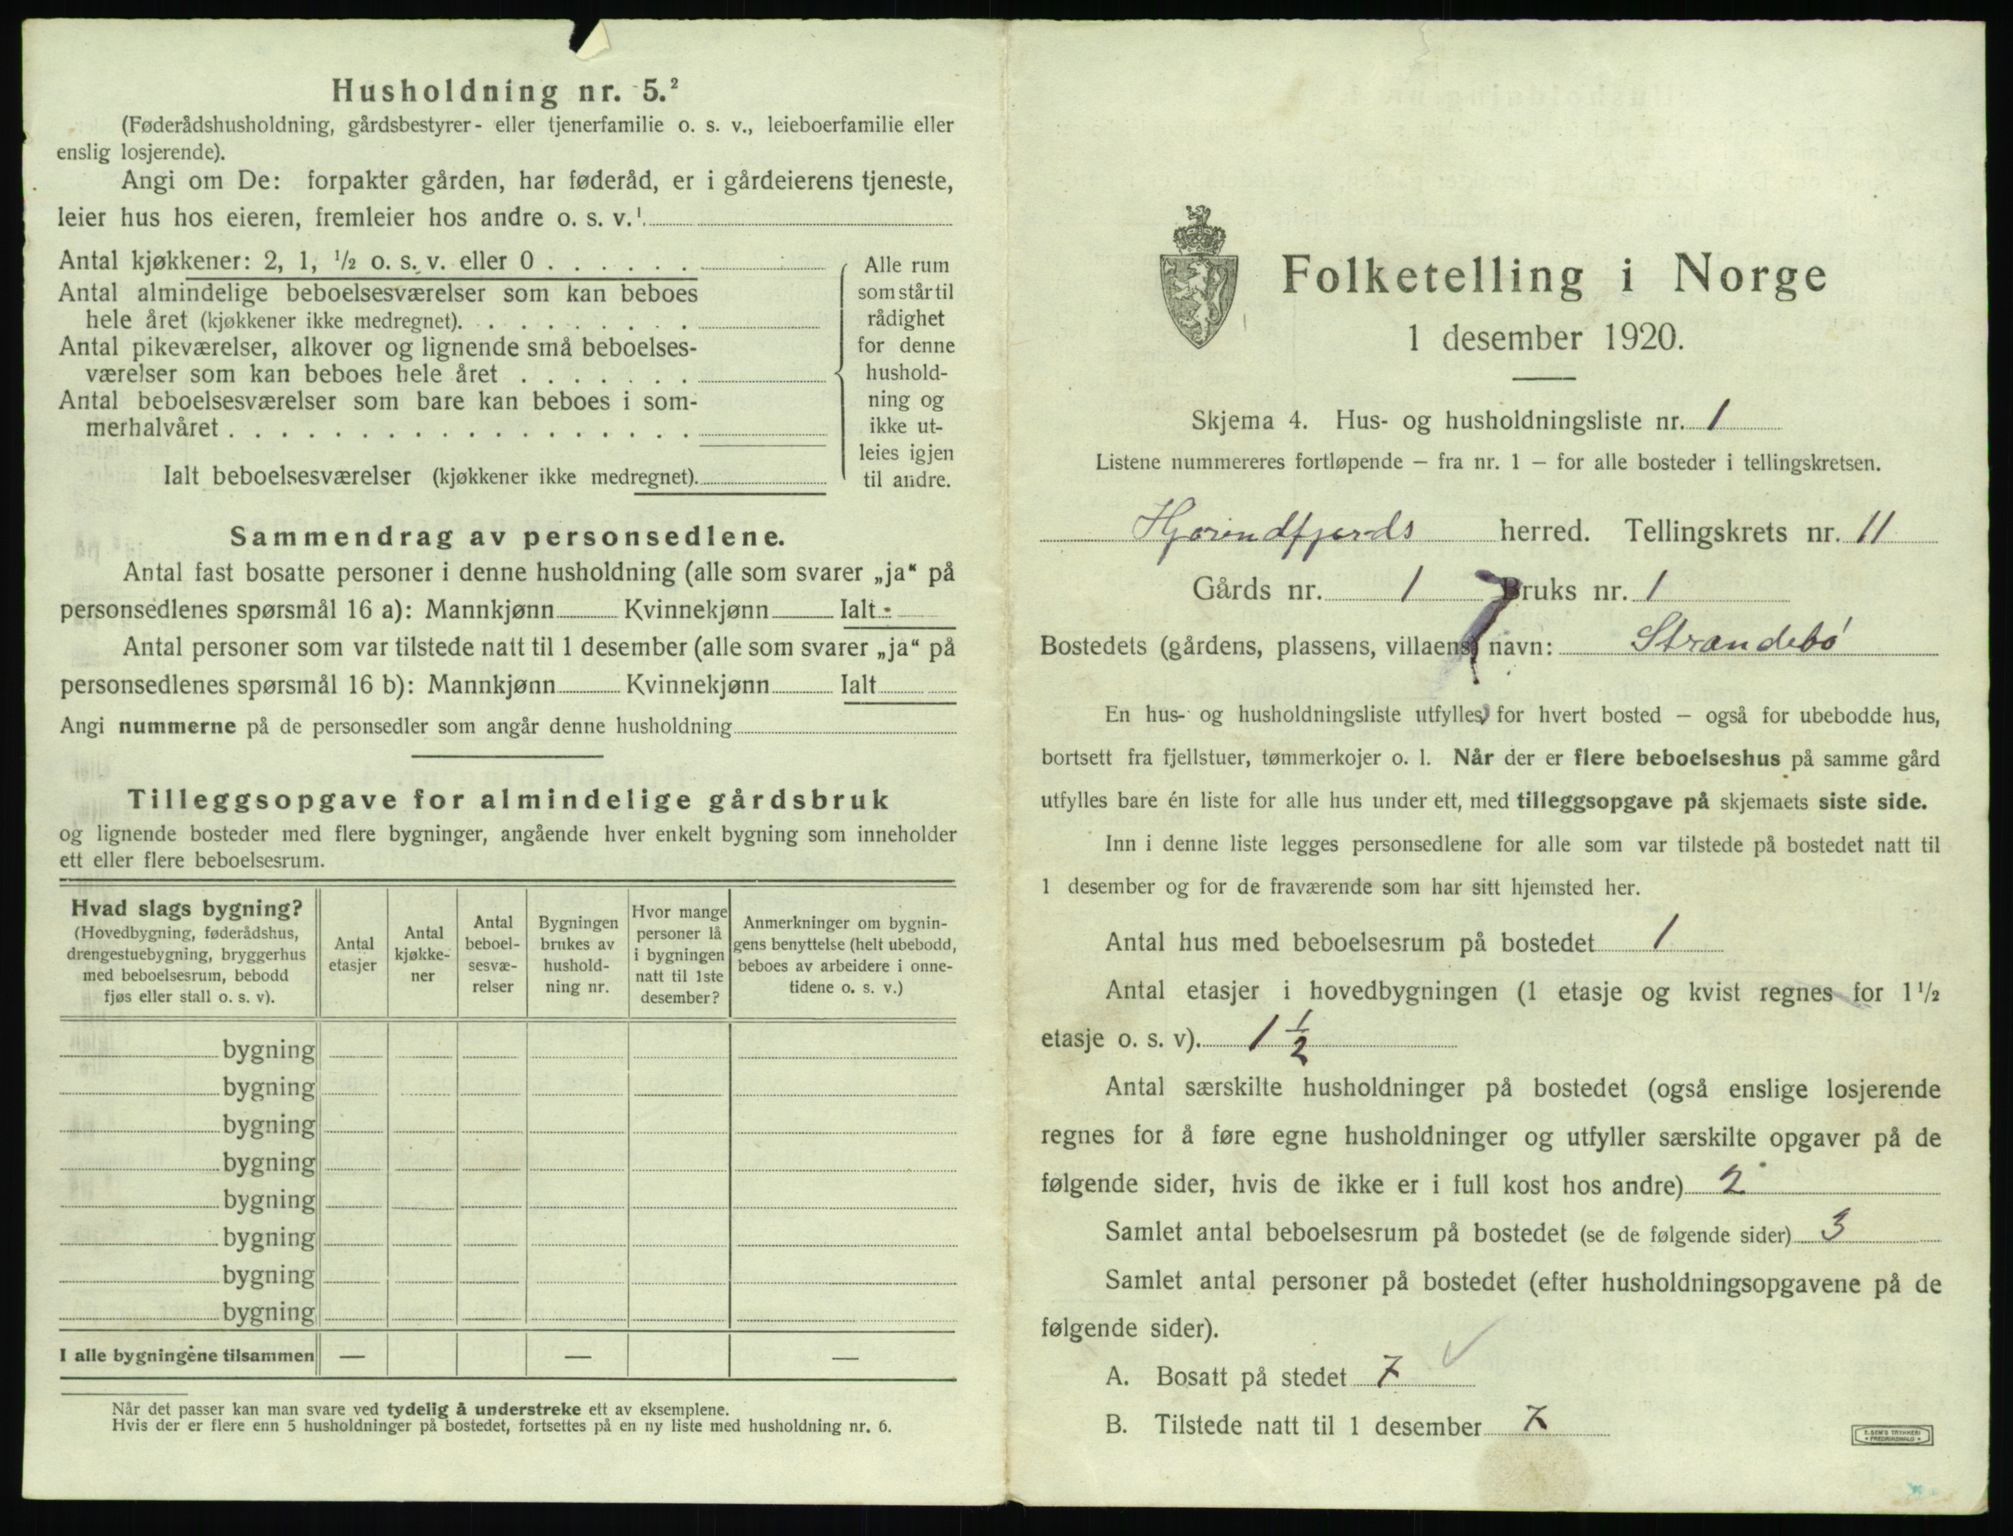 Husholdning nr. 5.²
(Føderådshusholdning, gårdsbestyrer- eller tjenerfamilie o. s. v., leieboerfamilie eller
enslig losjerende).
Angi om De: forpakter gården, har føderåd, er i gårdeierens tjeneste,
leier hus hos eieren, fremleier hos andre o. s. v.¹
Antal kjøkkener: 2, 1, ½ o. s. v. eller 0 . . . . . .
Antal almindelige beboelsesværelser som kan beboes
hele året (kjøkkener ikke medregnet). . . . . . . . .
Antal pikeværelser, alkover og lignende små beboelses-
værelser som kan beboes hele året . . . . . . .
Antal beboelsesværelser som bare kan beboes i som-
merhalvåret . . . . . . . . . . . . . . . . . .
Ialt beboelsesværelser (kjøkkener ikke medregnet).
Alle rum
som står til
rådighet
for denne
hushold-
ning og
ikke ut-
leies igjen
til andre.
Sammendrag av personsedlene.
Antal fast bosatte personer i denne husholdning (alle som svarer „ja“ på
personsedlenes spørsmål 16 a): Mannkjønn Kvinnekjønn Ialt
Antal personer som var tilstede natt til 1 desember (alle som svarer „ja“ på
personsedlenes spørsmål 16 b): Mannkjønn Kvinnekjønn Ialt
Angi nummerne på de personsedler som angår denne husholdning
Tilleggsopgave for almindelige gårdsbruk
og lignende bosteder med flere bygninger, angående hver enkelt bygning som inneholder
ett eller flere beboelsesrum.
Hvad slags bygning?
(Hovedbygning, føderådshus,
drengestuebygning, bryggerhus
med beboelsesrum, bebodd
fjøs eller stall o. s. v).
Antal
etasjer
Antal
kjøkke-
ner
Antal
beboel-
sesvæ-
relser
Bygningen
brukes av
hushold-
ning nr.
Hvor mange
personer lå
i bygningen
natt til 1ste
desember?
Anmerkninger om bygnin-
gens benyttelse (helt ubebodd,
beboes av arbeidere i onne-
tidene o. s. v.)
bygning
bygning
bygning
bygning
bygning
bygning
bygning
bygning
I alle bygningene tilsammen — — —
Når det passer kan man svare ved tydelig å understreke ett av eksemplene.
Hvis der er flere enn 5 husholdninger på bostedet, fortsettes på en ny liste med husholdning nr. 6.
Folketelling i Norge
1 desember 1920.
Skjema 4. Hus- og husholdningsliste nr. 1
Listene nummereres fortløpende — fra nr. 1 — for alle bosteder i tellingskretsen.
Hjørendfjords herred. Tellingskrets nr. 11
Gårds nr. 1 Bruks nr. 1
Bostedets (gårdens, plassens, villaens) navn: Strandebø
En hus- og husholdningsliste utfylles for hvert bosted — også for ubebodde hus,
bortsett fra fjellstuer, tømmerkojer o. l. Når der er flere beboelseshus på samme gård
utfylles bare én liste for alle hus under ett, med tilleggsopgave på skjemaets siste side.
Inn i denne liste legges personsedlene for alle som var tilstede på bostedet natt til
1 desember og for de fraværende som har sitt hjemsted her.
Antal hus med beboelsesrum på bostedet 1
Antal etasjer i hovedbygningen (1 etasje og kvist regnes for 1½
etasje o. s. v). 1½
Antal særskilte husholdninger på bostedet (også enslige losjerende
regnes for å føre egne husholdninger og utfyller særskilte opgaver på de
følgende sider, hvis de ikke er i full kost hos andre) 2
Samlet antal beboelsesrum på bostedet (se de følgende sider) 3
Samlet antal personer på bostedet (efter husholdningsopgavene på de
følgende sider).
A. Bosatt på stedet 7 ✓
B. Tilstede natt til 1 desember 7